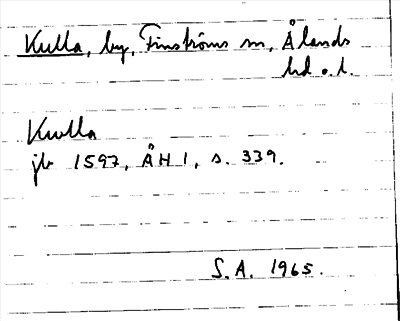 Kulla, by, Finströms sn, Ålands
hd o. l.
Kulla
jb 1597, ÅH 1, s. 339.
S. A. 1965.